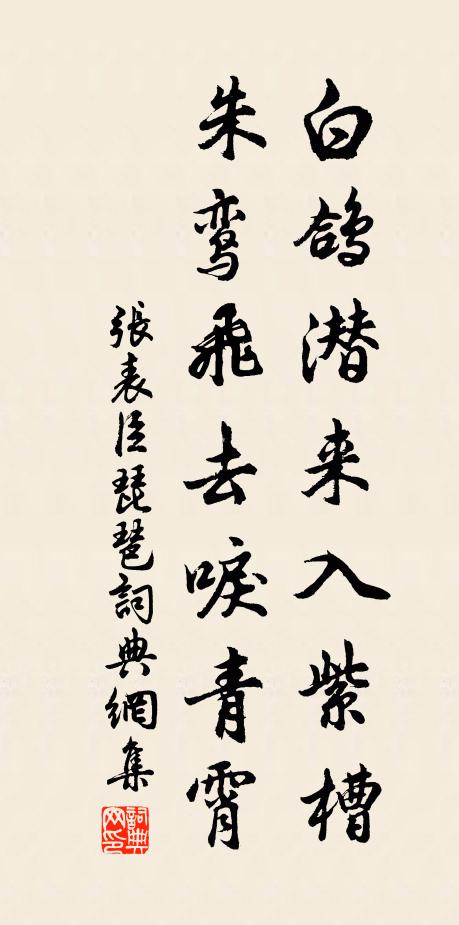 白鸽潜来入紫槽
朱鸾飛去唳青霄
張表臣琵琶詞典網集
詞典网印